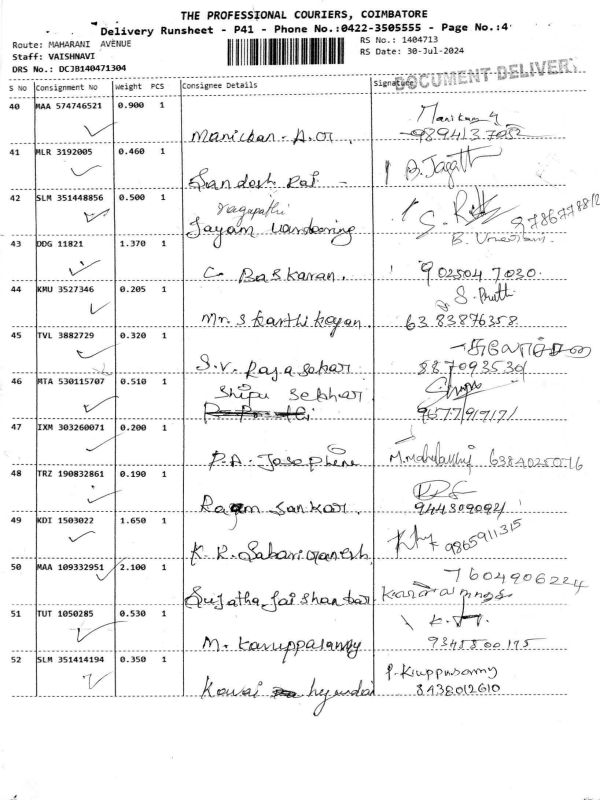 THE PROFESSIONAL COURIERS, COIMBATORE
Delivery Runsheet - P41 - Phone No.:0422-3505555 - Page No.:4
Route: MAHARANI AVENUE
RS No.: 1404713
Staff: VAISHNAVI
RS Date: 30-Jul-2024
DRS No.: DCJB140471304
DOCUMENT DELIVERY
S No Consignment No Weight PCS Consignee Details Signature
40 MAA 574746521 0.900 1
41 MLR 3192005 0.460 1
B. Jagath
42 SLM 351448856 0.500 1
ragupathi
Jayam
43 DDG 11821 1.370 1
C. Baskaran. 902504 7030.
44 KMU 3527346 0.205 1
Mr. S karthikeyan. 63 83876358
45 TVL 3882729 0.320 1
S.V. Rajasekar 88 7093530
46 MTA 530115707 0.510 1
Shipu Sekhar
9677191717
47 IXM 303260071 0.200 1
P.A. Josephine 6384025076
48 TRZ 190832861 0.190 1
Sankar.
49 KDI 1503022 1.650 1
9865911315
K. R. Sabariganesh
50 MAA 109332951 2.100 1
7604906224
Sujatha Jaishankar.
51 TUT 1050285 0.530 1
M. Karuppasamy
52 SLM 351414194 0.350 1
Kovai hyundai 8438012610